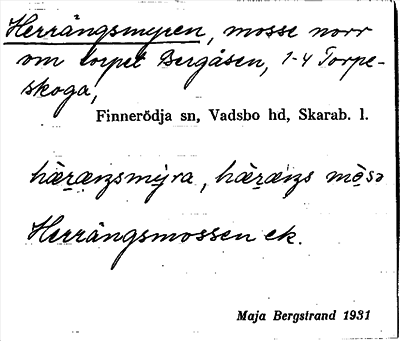 Herrängsmyren, mosse norr
om torpet Bergåsen, 1-4 Torpe-
skoga,
Finnerödja sn, Vadsbo hd, Skarab. l.
Herrängsmossen ek.
Maja Bergstrand 1931